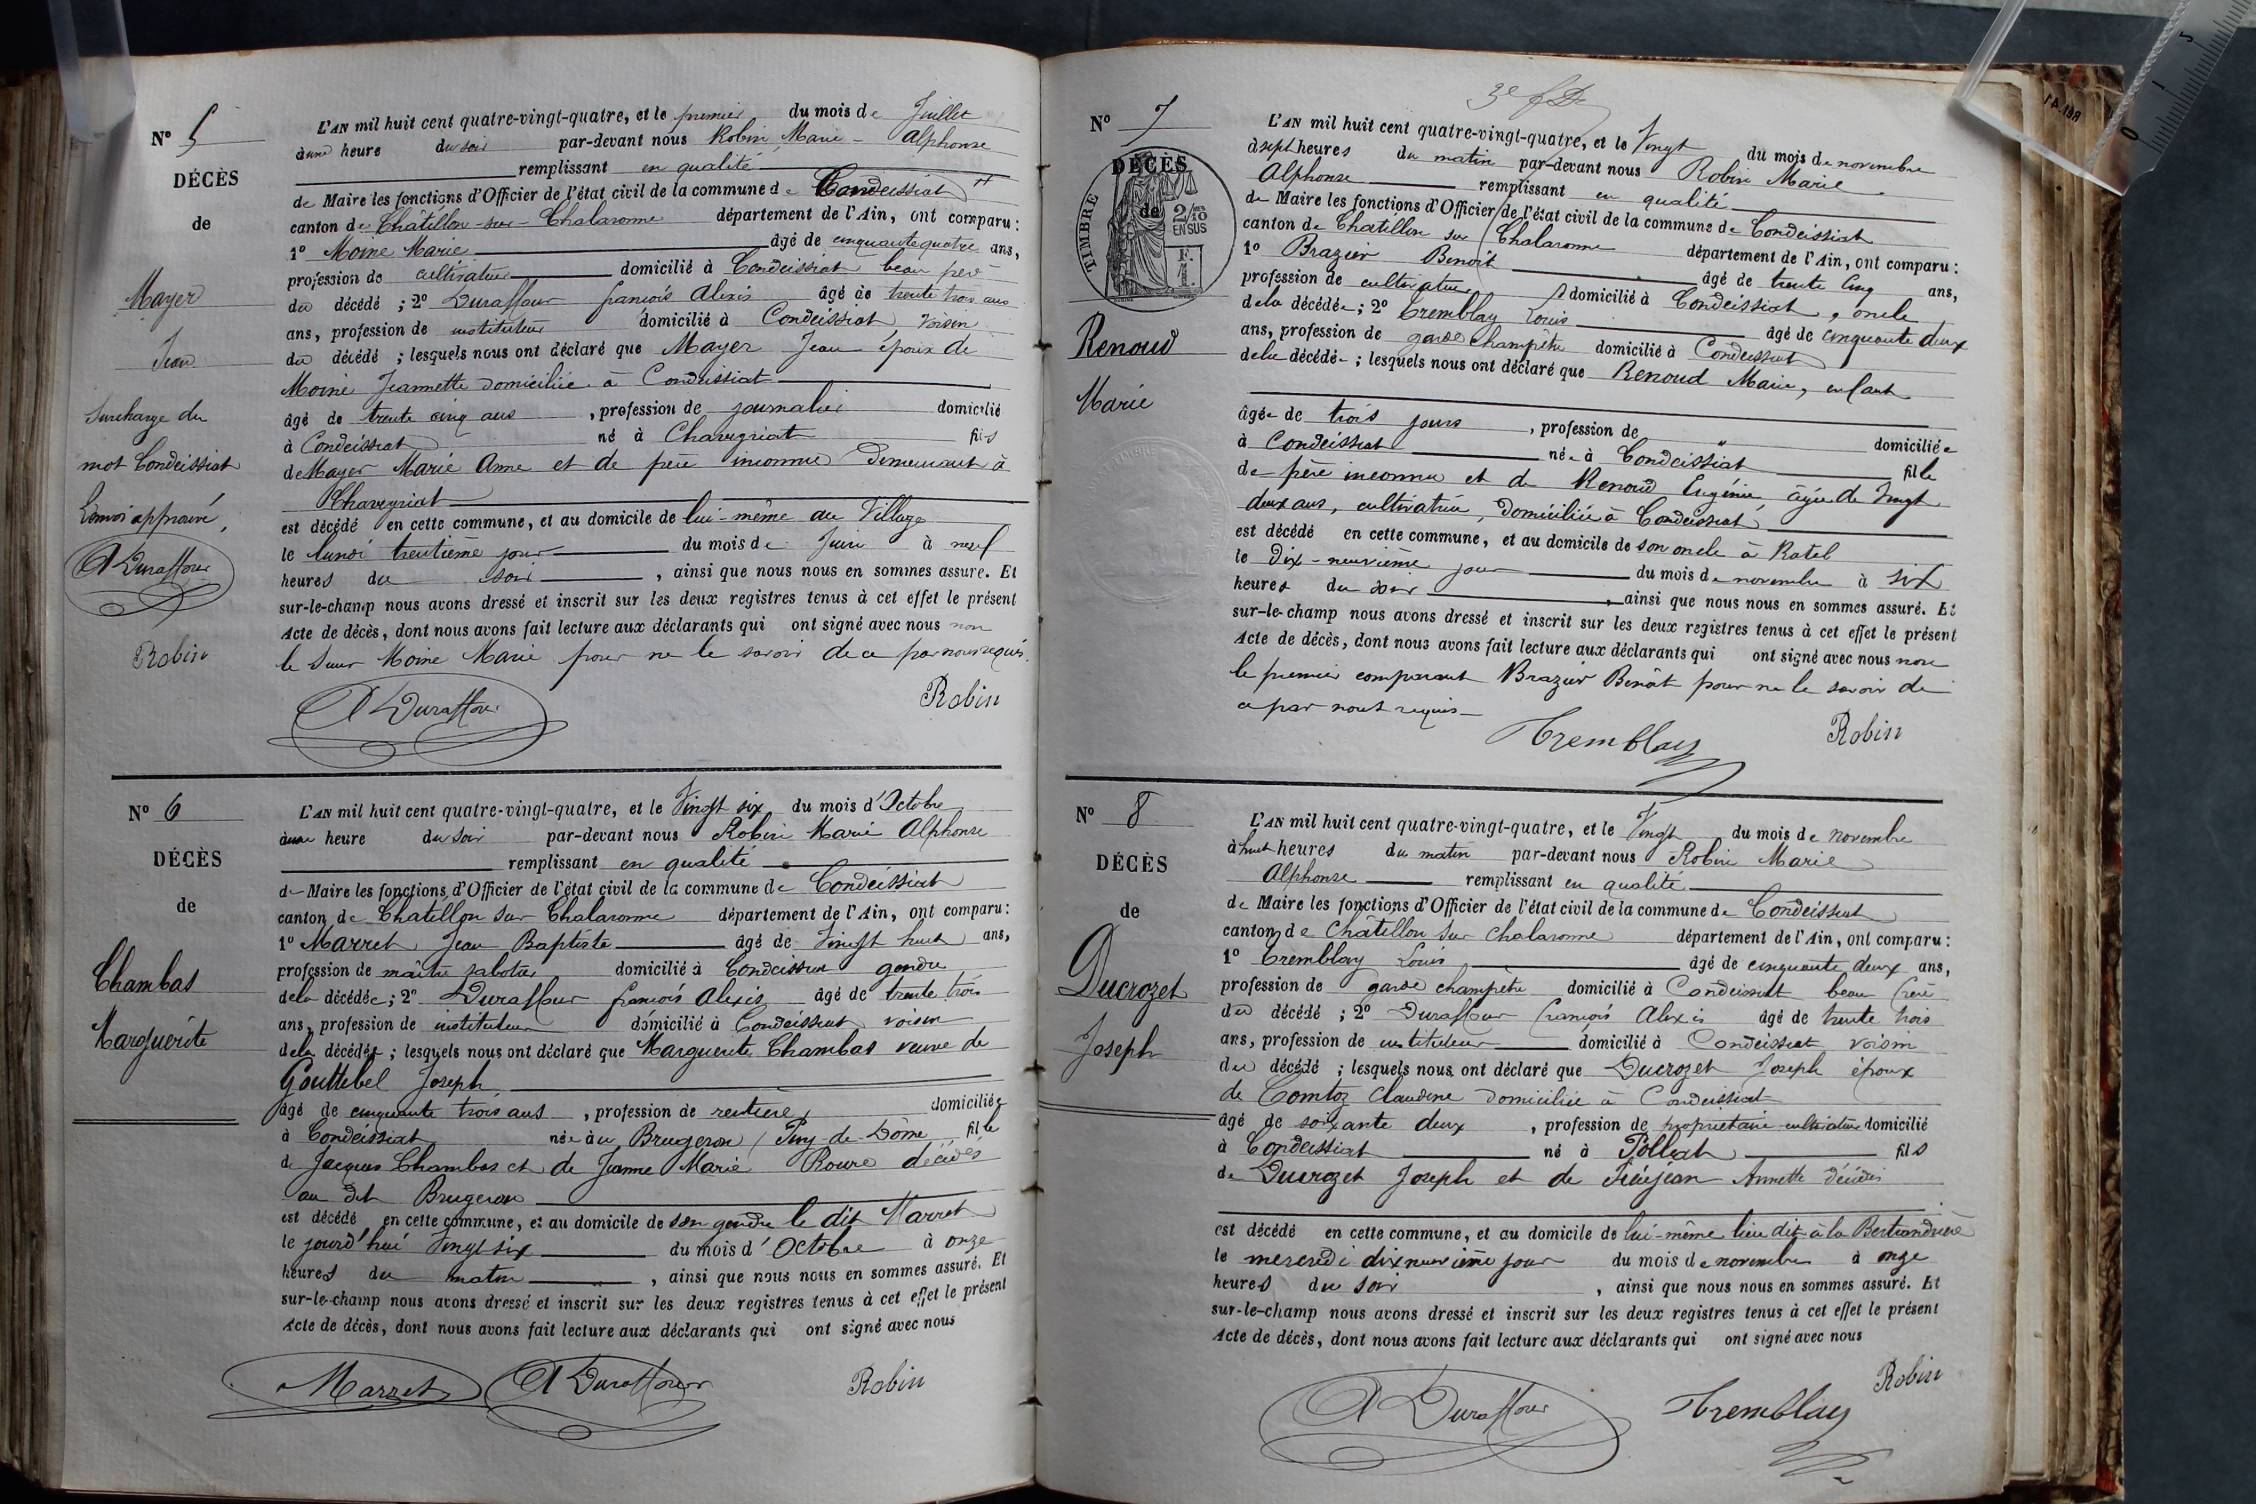 N° 5
DÉCÈS
de
Mayer
Jean
Surcharge du
mot Condeissiat
Renvoi approuvé,
A Duraffour
Robin
L'AN mil huit cent quatre-vingt-quatre, et le premier du mois de Juillet
à une heure du soir par-devant nous Robin Marie-Alphonse
remplissant en qualité
de Maire les fonctions d'Officier de l'état civil de la commune de Condeissiat
canton de Châtillon-sur-Chalaronne département de l'Ain, ont comparu :
1° Moine Marie âgé de cinquante quatre ans,
profession de cultivateur domicilié à Condeissiat beau père
du décédé ; 2° Duraffour françois Alexis âgé de trente trois ans
ans, profession de instituteur domicilié à Condeissiat, voisin
du décédé ; lesquels nous ont déclaré que Mayer Jean époux de
Moine Jeannette domiciliée à Condeissiat
âgé de trente cinq ans, profession de journalier domicilié
à Condeissiat né à Chaveyriat fils
de Mayer Marie Anne et de père inconnu demeurant à
Chaveyriat
est décédé en cette commune, et au domicile de lui-même au Village
le lundi trentième jour du mois de Juin à neuf
heures du soir, ainsi que nous nous en sommes assuré. Et
sur-le-champ nous avons dressé et inscrit sur les deux registres tenus à cet effet le présent
Acte de décès, dont nous avons fait lecture aux déclarants qui ont signé avec nous non
le Sieur Moine Marie pour ne le savoir de ce par nous requis.
A Duraffour
Robin
N° 6
DÉCÈS
de
Chambas
Marguerite
L'AN mil huit cent quatre-vingt-quatre, et le Vingt six du mois d'Octobre
à une heure du soir par-devant nous Robin Marie Alphonse
remplissant en qualité
de Maire les fonctions d'Officier de l'état civil de la commune de Condeissiat
canton de Chatillon sur Chalaronne département de l'Ain, ont comparu :
1° Marret Jean Baptiste âgé de Vingt huit ans,
profession de maître sabotier domicilié à Condeissiat gendre
de la décédée ; 2° Duraffour françois Alexis âgé de trente trois
ans, profession de instituteur domicilié à Condeissiat voisin
de la décédée ; lesquels nous ont déclaré que Marguerite Chambas veuve de
Gouttebel Joseph
âgé de cinquante trois ans, profession de rentière domiciliée
à Condeissiat née au Brugeron (Puy-de-Dôme fille
de Jacques Chambas et de Jeanne Marie Roure décédés
au dit Brugeron
est décédé en cette commune, et au domicile de son gendre le dit Marret
le jourd'hui Vingt six du mois d'Octobre à onze
heures du matin, ainsi que nous nous en sommes assuré. Et
sur-le-champ nous avons dressé et inscrit sur les deux registres tenus à cet effet le présent
Acte de décès, dont nous avons fait lecture aux déclarants qui ont signé avec nous
Marret
A Duraffour
Robin
N° 7
DÉCÈS
de
TIMBRE
2/10 EN SUS
F. 1.
Renoud
Marie
L'AN mil huit cent quatre-vingt-quatre, et le Vingt du mois de novembre
à sept heures du matin par-devant nous Robin Marie
Alphonse remplissant en qualité
de Maire les fonctions d'Officier de l'état civil de la commune de Condeissiat
canton de Chatillon sur Chalaronne département de l'Ain, ont comparu :
1° Brazier Benoit âgé de trente cinq ans,
profession de cultivateur domicilié à Condeissiat, oncle
de la décédée ; 2° Tremblay Louis âgé de cinquante deux
ans, profession de garde champêtre domicilié à Condeissiat
de la décédée ; lesquels nous ont déclaré que Renoud Marie, enfant
âgée de trois jours, profession de " domiciliée
à Condeissiat née à Condeissiat fille
de père inconnu et de Renoud Eugénie, âgée de Vingt
deux ans, cultivatrice, domiciliée à Condeissiat
est décédé en cette commune, et au domicile de son oncle à Ratel
le Dix-neuvième jour du mois de novembre à six
heures du soir, ainsi que nous nous en sommes assuré. Et
sur-le-champ nous avons dressé et inscrit sur les deux registres tenus à cet effet le présent
Acte de décès, dont nous avons fait lecture aux déclarants qui ont signé avec nous non
le premier comparant Brazier Benoit pour ne le savoir de
ce par nous requis
Tremblay
Robin
N° 8
DÉCÈS
de
Ducrozet
Joseph
L'AN mil huit cent quatre-vingt-quatre, et le Vingt du mois de novembre
à huit heures du matin par-devant nous Robin Marie
Alphonse remplissant en qualité
de Maire les fonctions d'Officier de l'état civil de la commune de Condeissiat
canton de Châtillon sur Chalaronne département de l'Ain, ont comparu :
1° Tremblay Louis âgé de cinquante deux ans,
profession de garde champêtre domicilié à Condeissiat beau frère
du décédé ; 2° Duraffour françois Alexis âgé de trente trois
ans, profession de instituteur domicilié à Condeissiat voisin
du décédé ; lesquels nous ont déclaré que Ducrozet Joseph époux
de Comtoz Claudine domiciliée à Condeissiat
âgé de soixante deux, profession de propriétaire-cultivateur domicilié
à Condeissiat né à Polliat fils
de Ducrozet Joseph et de Fréréjean Annette décédés
est décédé en cette commune, et au domicile de lui-même lieu dit à la Bertrandière
le mercredi dix neuvième jour du mois de novembre à onze
heures du soir, ainsi que nous nous en sommes assuré. Et
sur-le-champ nous avons dressé et inscrit sur les deux registres tenus à cet effet le présent
Acte de décès, dont nous avons fait lecture aux déclarants qui ont signé avec nous
A Duraffour
Tremblay
Robin